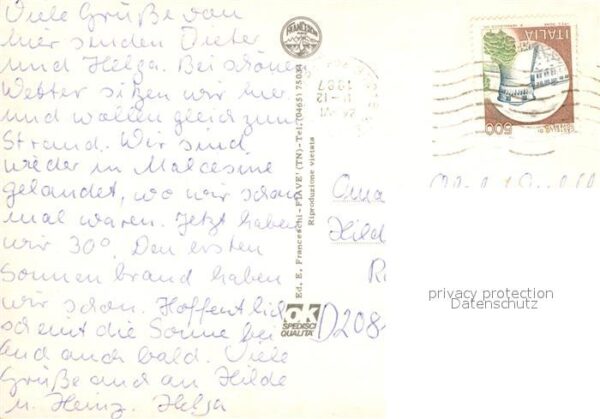 Viele Grüße von
hier senden Dieter
und Helga. Bei schönem
Wetter sitzen wir hier
und wollen gleich zum
Strand. Wir sind
wieder in Malcesine
gelandet, wo wir schon
mal waren. Jetzt haben
wir 30°. Den ersten
Sonnenbrand haben
wir schon. Hoffentlich
scheint die Sonne bei
Euch auch bald. Viele
Grüße auch an Hilde
u. Heinz. Helga
FRANCESCHI
Ed. E. Franceschi - PIAVE' (TN) - Tel. (0465) 75034
Riproduzione vietata
OK
SPEDISCI
QUALITÀ
1987
11-12
ITALIA
500
Hild
D208
privacy protection
Datenschutz